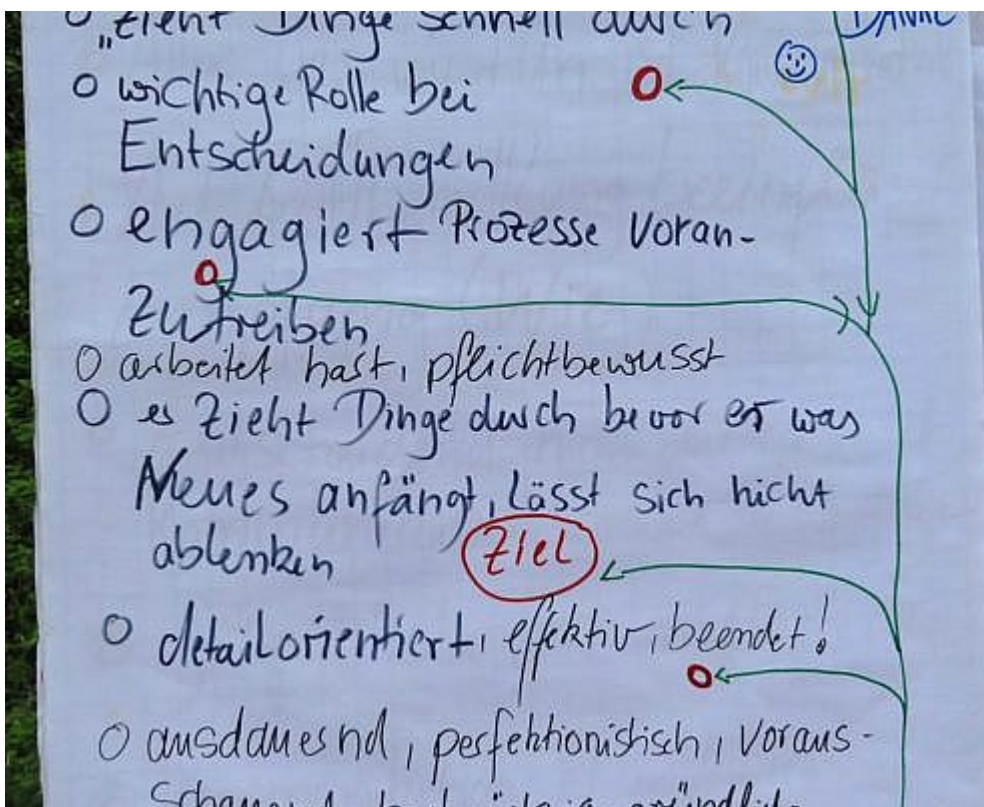 o „zieht Dinge schnell durch
o wichtige Rolle bei
Entscheidungen
o engagiert Prozesse voran-
zutreiben
o arbeitet hart, pflichtbewusst
o er zieht Dinge durch bevor er was
Neues anfängt, lässt sich nicht
ablenken
Ziel
o detailorientiert, effektiv, beendet!
o ausdauernd, perfektionistisch, voraus-